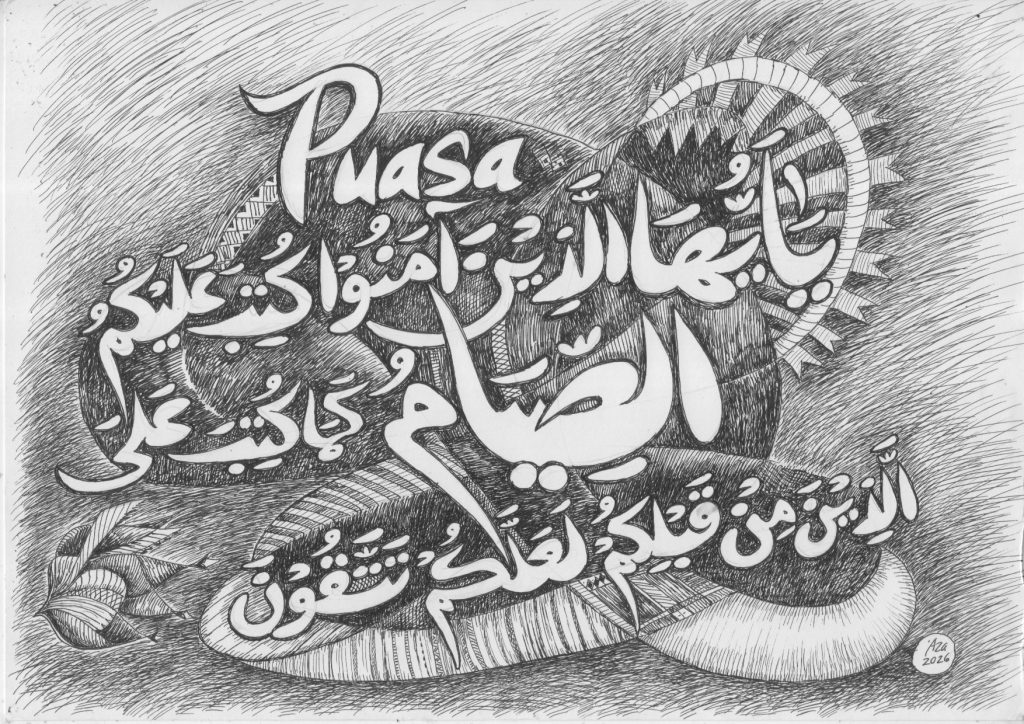 Puasa
يَأَيُّهَا الَّذِيْنَ اٰمَنُوْا كُتِبَ عَلَيْكُمُ
الصِّيَامُ كَمَا كُتِبَ عَلَى
الَّذِيْنَ مِنْ قَبْلِكُمْ لَعَلَّكُمْ تَتَّقُوْنَ
'Aza
2026